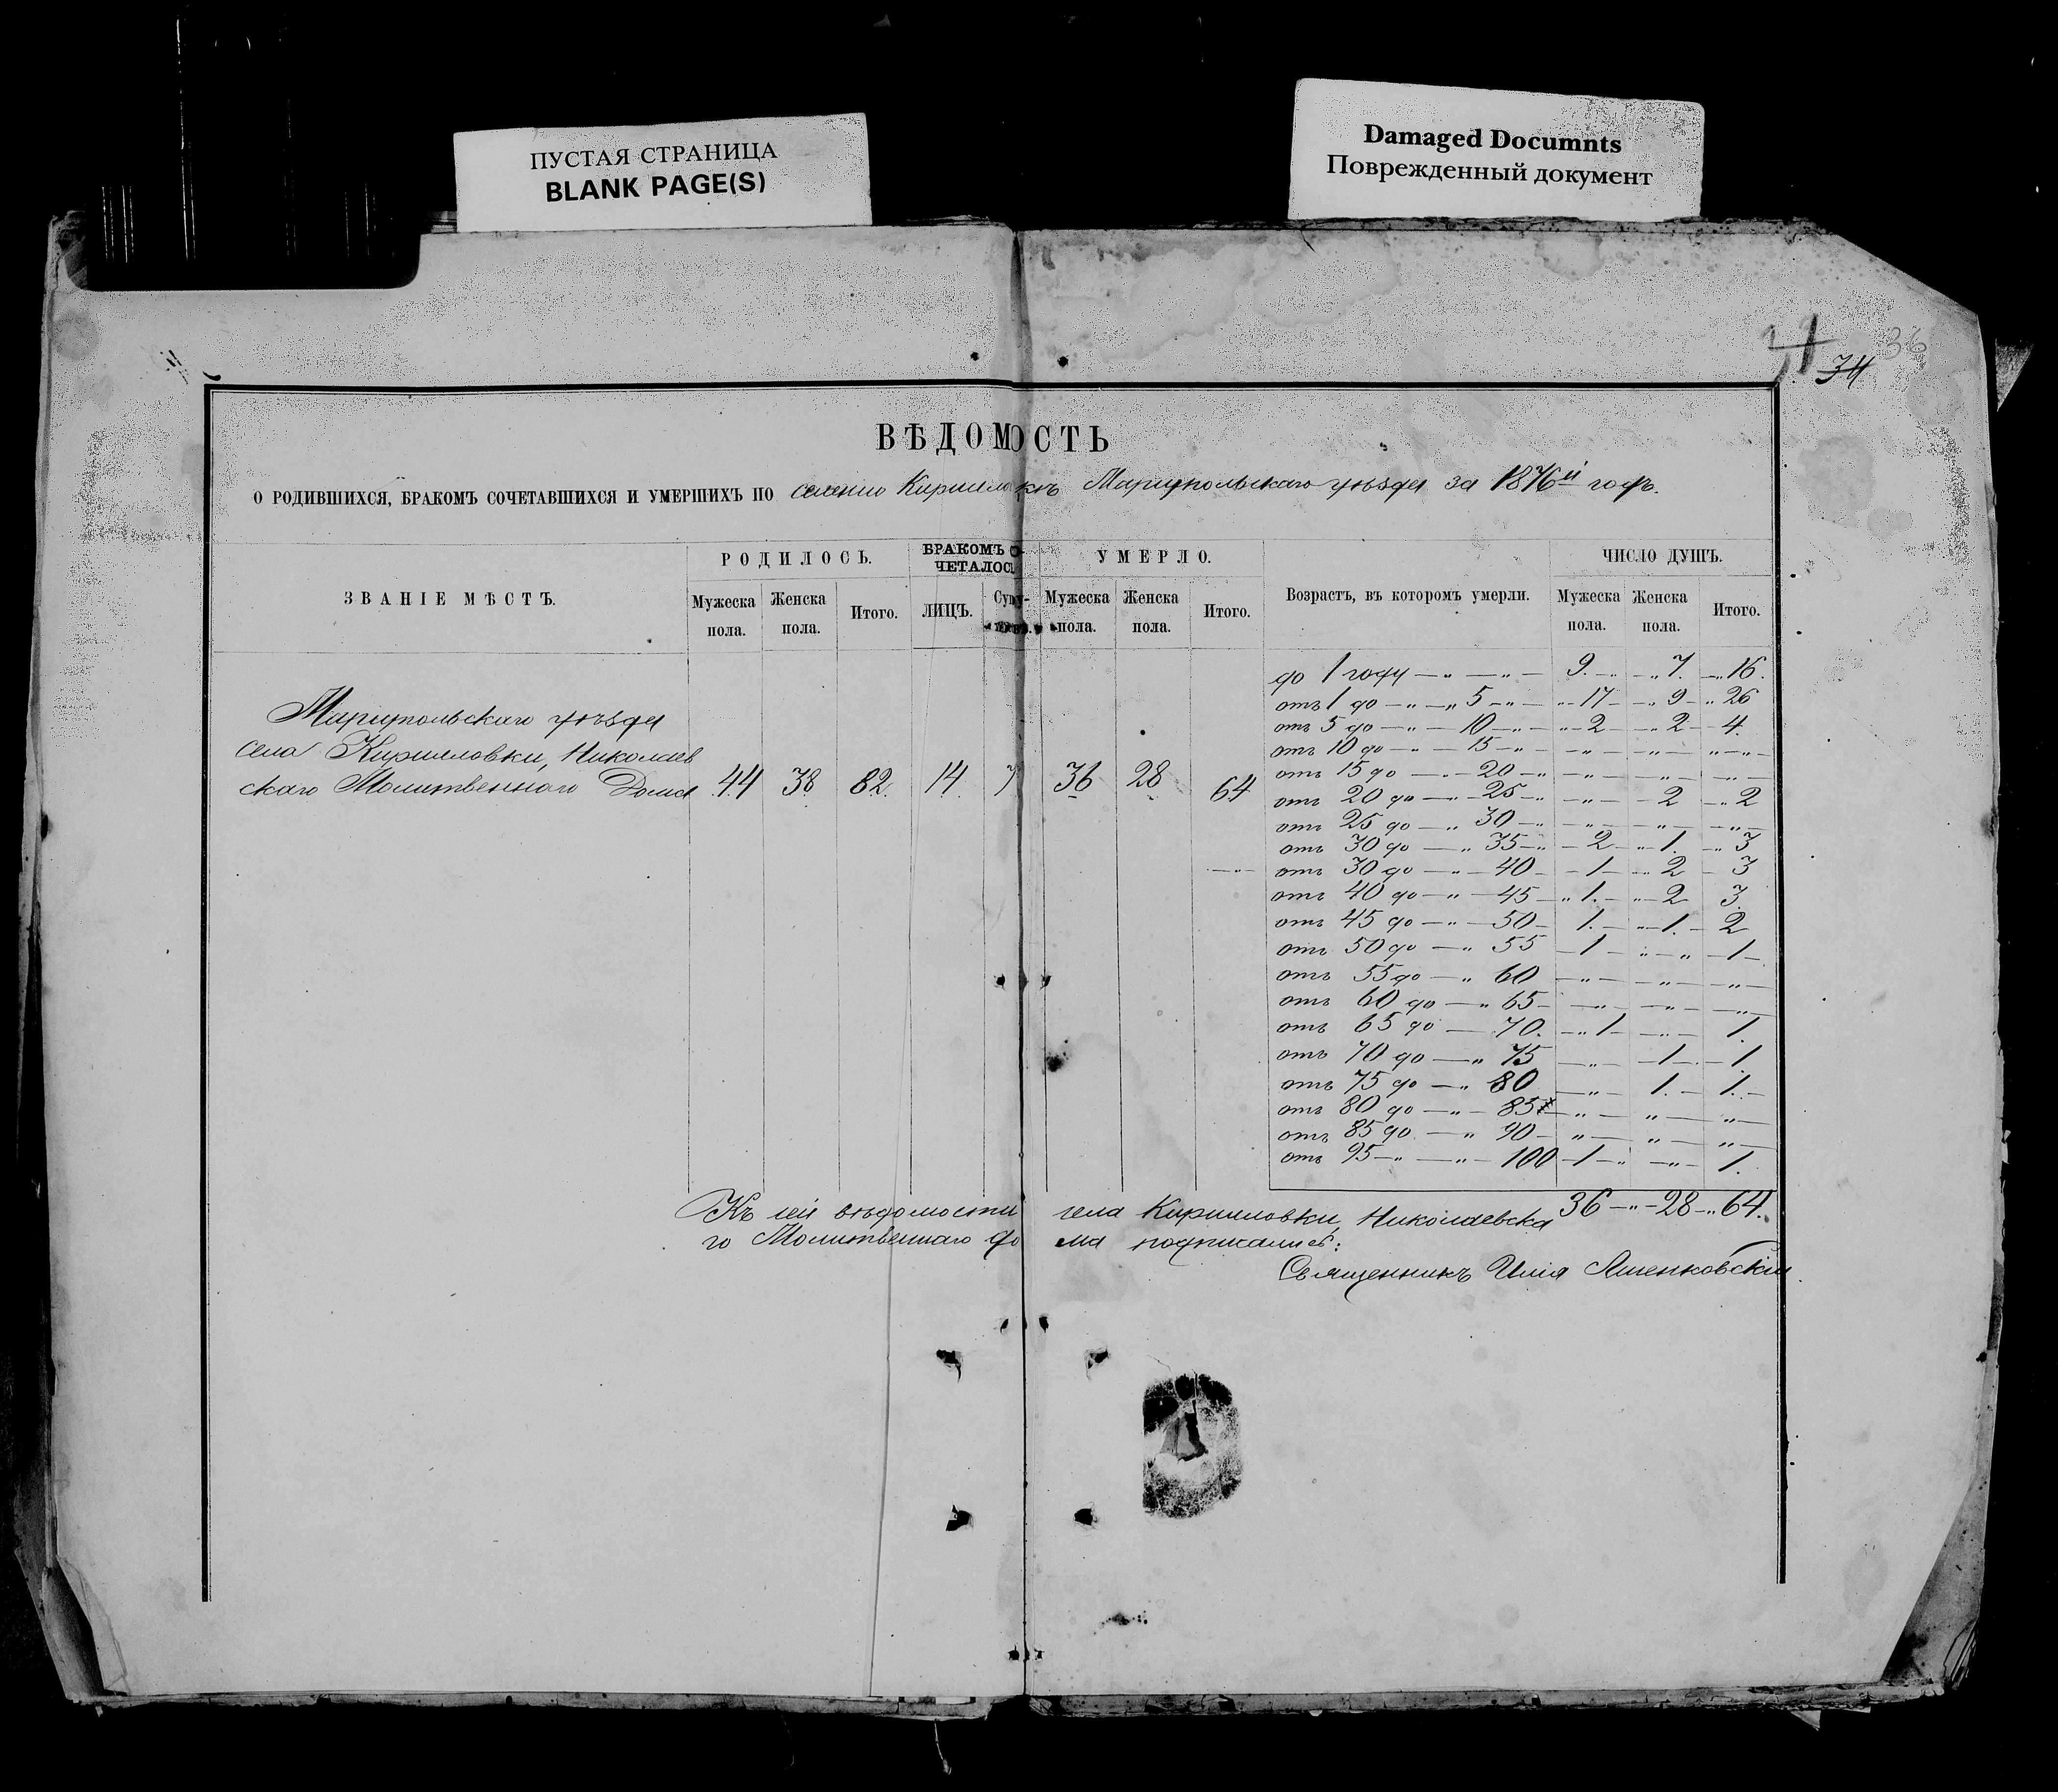 ПУСТАЯ СТРАНИЦА
BLANK PAGE(S)
Damaged Documnts
Поврежденный документ
36
34
ВѢДОМОСТЬ
О РОДИВШИХСЯ, БРАКОМЪ СОЧЕТАВШИХСЯ И УМЕРШИХЪ ПО селенію Кирилловкѣ Маріупольскаго уѣзда за 1876й годъ.
ЗВАНІЕ МѢСТЪ.
РОДИЛОСЬ.
БРАКОМЪ СО-
ЧЕТАЛОСЬ
УМЕРЛО.
Возрастъ, въ которомъ умерли.
ЧИСЛО ДУШЪ.
Мужеска пола.
Женска пола.
Итого.
ЛИЦЪ.
Мужеска пола.
Женска пола.
Итого.
Мужеска пола.
Женска пола.
Итого.
Маріупольскаго уѣзда
села Кирилловки, Николаев
скаго Молитвеннаго Дома 44 38 82. 14 7 36 28 64
до 1 году — „ — „ — 9. — „ 7. — „ 16.
отъ 1 до — „ — „ 5 — „ — „ 17 — „ 9 — „ 26
отъ 5 до — „ — 10 — „ — „ 2 — „ 2 — 4.
отъ 10 до — „ — 15 — „ — „ — „ — „ — „ —
отъ 15 до — „ — 20 — „ — „ — „ — „ —
отъ 20 до — „ — 25 — „ — „ — 2 — „ 2
отъ 25 до — „ 30 — „ — „ — „ — „ —
отъ 30 до — „ 35 — „ — 2 — „ 1. — „ 3
отъ 30 до — „ — 40 — 1 — „ 2 — 3
отъ 40 до — „ — 45 — „ 1. — „ — 2 3.
отъ 45 до — „ — 50 — 1. — „ 1. — 2
отъ 50 до — „ 55 — 1 — „ — „ — 1 —
отъ 55 до — „ 60 — „ — „ — „ —
отъ 60 до — „ 65 — „ — „ — „ —
отъ 65 до — 70. — „ 1 — „ — 1.
отъ 70 до — „ 75 — „ — 1 — 1.
отъ 75 до — „ 80 — „ — 1. — 1. —
отъ 80 до — „ — 85 — „ — „ — „ —
отъ 85 до — „ 90 — „ — „ — „ —
отъ 95 — „ — „ — 100 — 1 — „ — „ — 1.
36 — „ — 28 — „ 64.
Къ сей вѣдомости села Кирилловки, Николаевска
го Молитвеннаго дома подписались:
Священникъ Илія Яшенковскій.